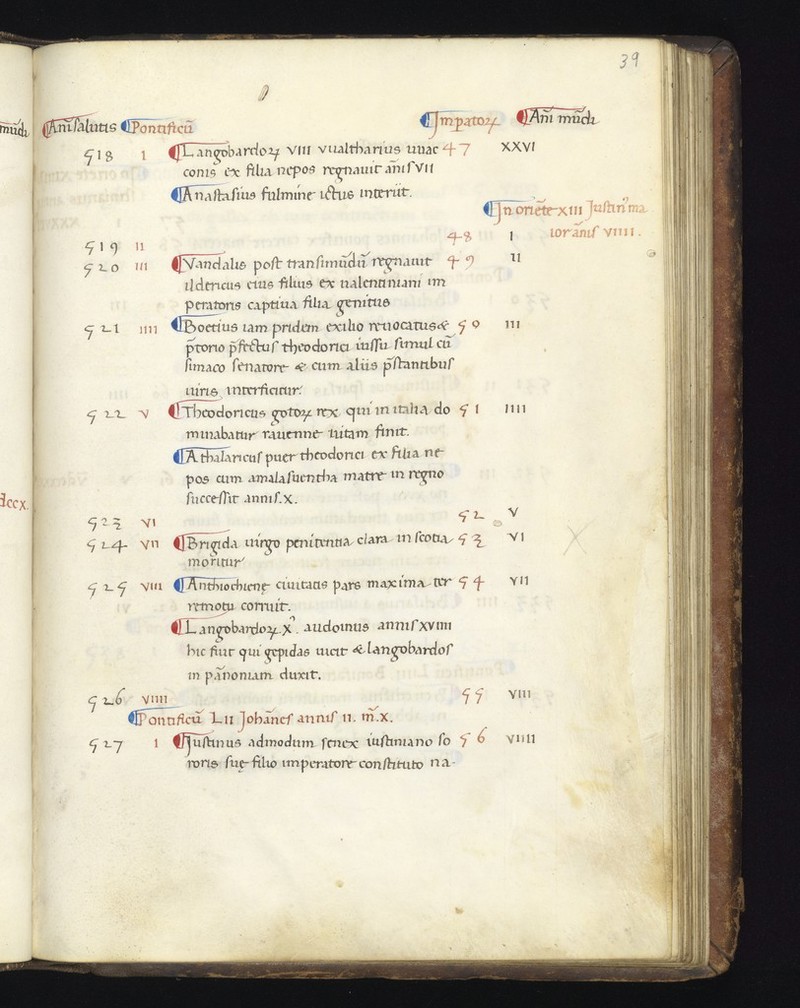 39
Añi salutis Pontificũ Imꝑatoꝝ Añi mũdi
mũdi
518 I Langobardoꝝ VIII vualtharius uuac 47 XXVI
conis ex filia nepos regnauit añis VII
Anastasius fulmine ictus interiit.
In oriẽte XIII Justin' ma
ior añis VIIII.
519 II 48 I
520 III Vandalis post transimũdũ regnauit 49 II
ildericus eius filius ex ualentiniani im
peratoris captiua filia genitus
521 IIII Boetius iam pridem exilio reuocatus & 50 III
p̃torio p̃fectus theodorici iussu simul cũ
simaco senatore & cum aliis p̃stantibus
uiris interficitur.
522 V Theodoricus gotoꝝ rex qui in italia do 51 IIII
minabatur rauenne uitam finit.
Athalaricus puer theodorici ex filia ne
pos cum amalasuentha matre in regno
successit annis .X.
dccx.
523 VI 52 V
524 VII Brigida uirgo penitentia clara in scotia 53 VI
moritur
525 VIII Anthiochienę ciuitatis pars maxima ter 54 VII
remotu corruit.
Langobardoꝝ X'. audoinus annis XVIII
hic fuit qui gepidas uicit & langobardos
in pãnoniam duxit.
526 VIIII 55 VIII
Pontificũ LII Johãnes annis II. m̃.X.
527 I Justinus admodum senex iustiniano so 56 VIIII
roris suę filio imperatore constituto na-